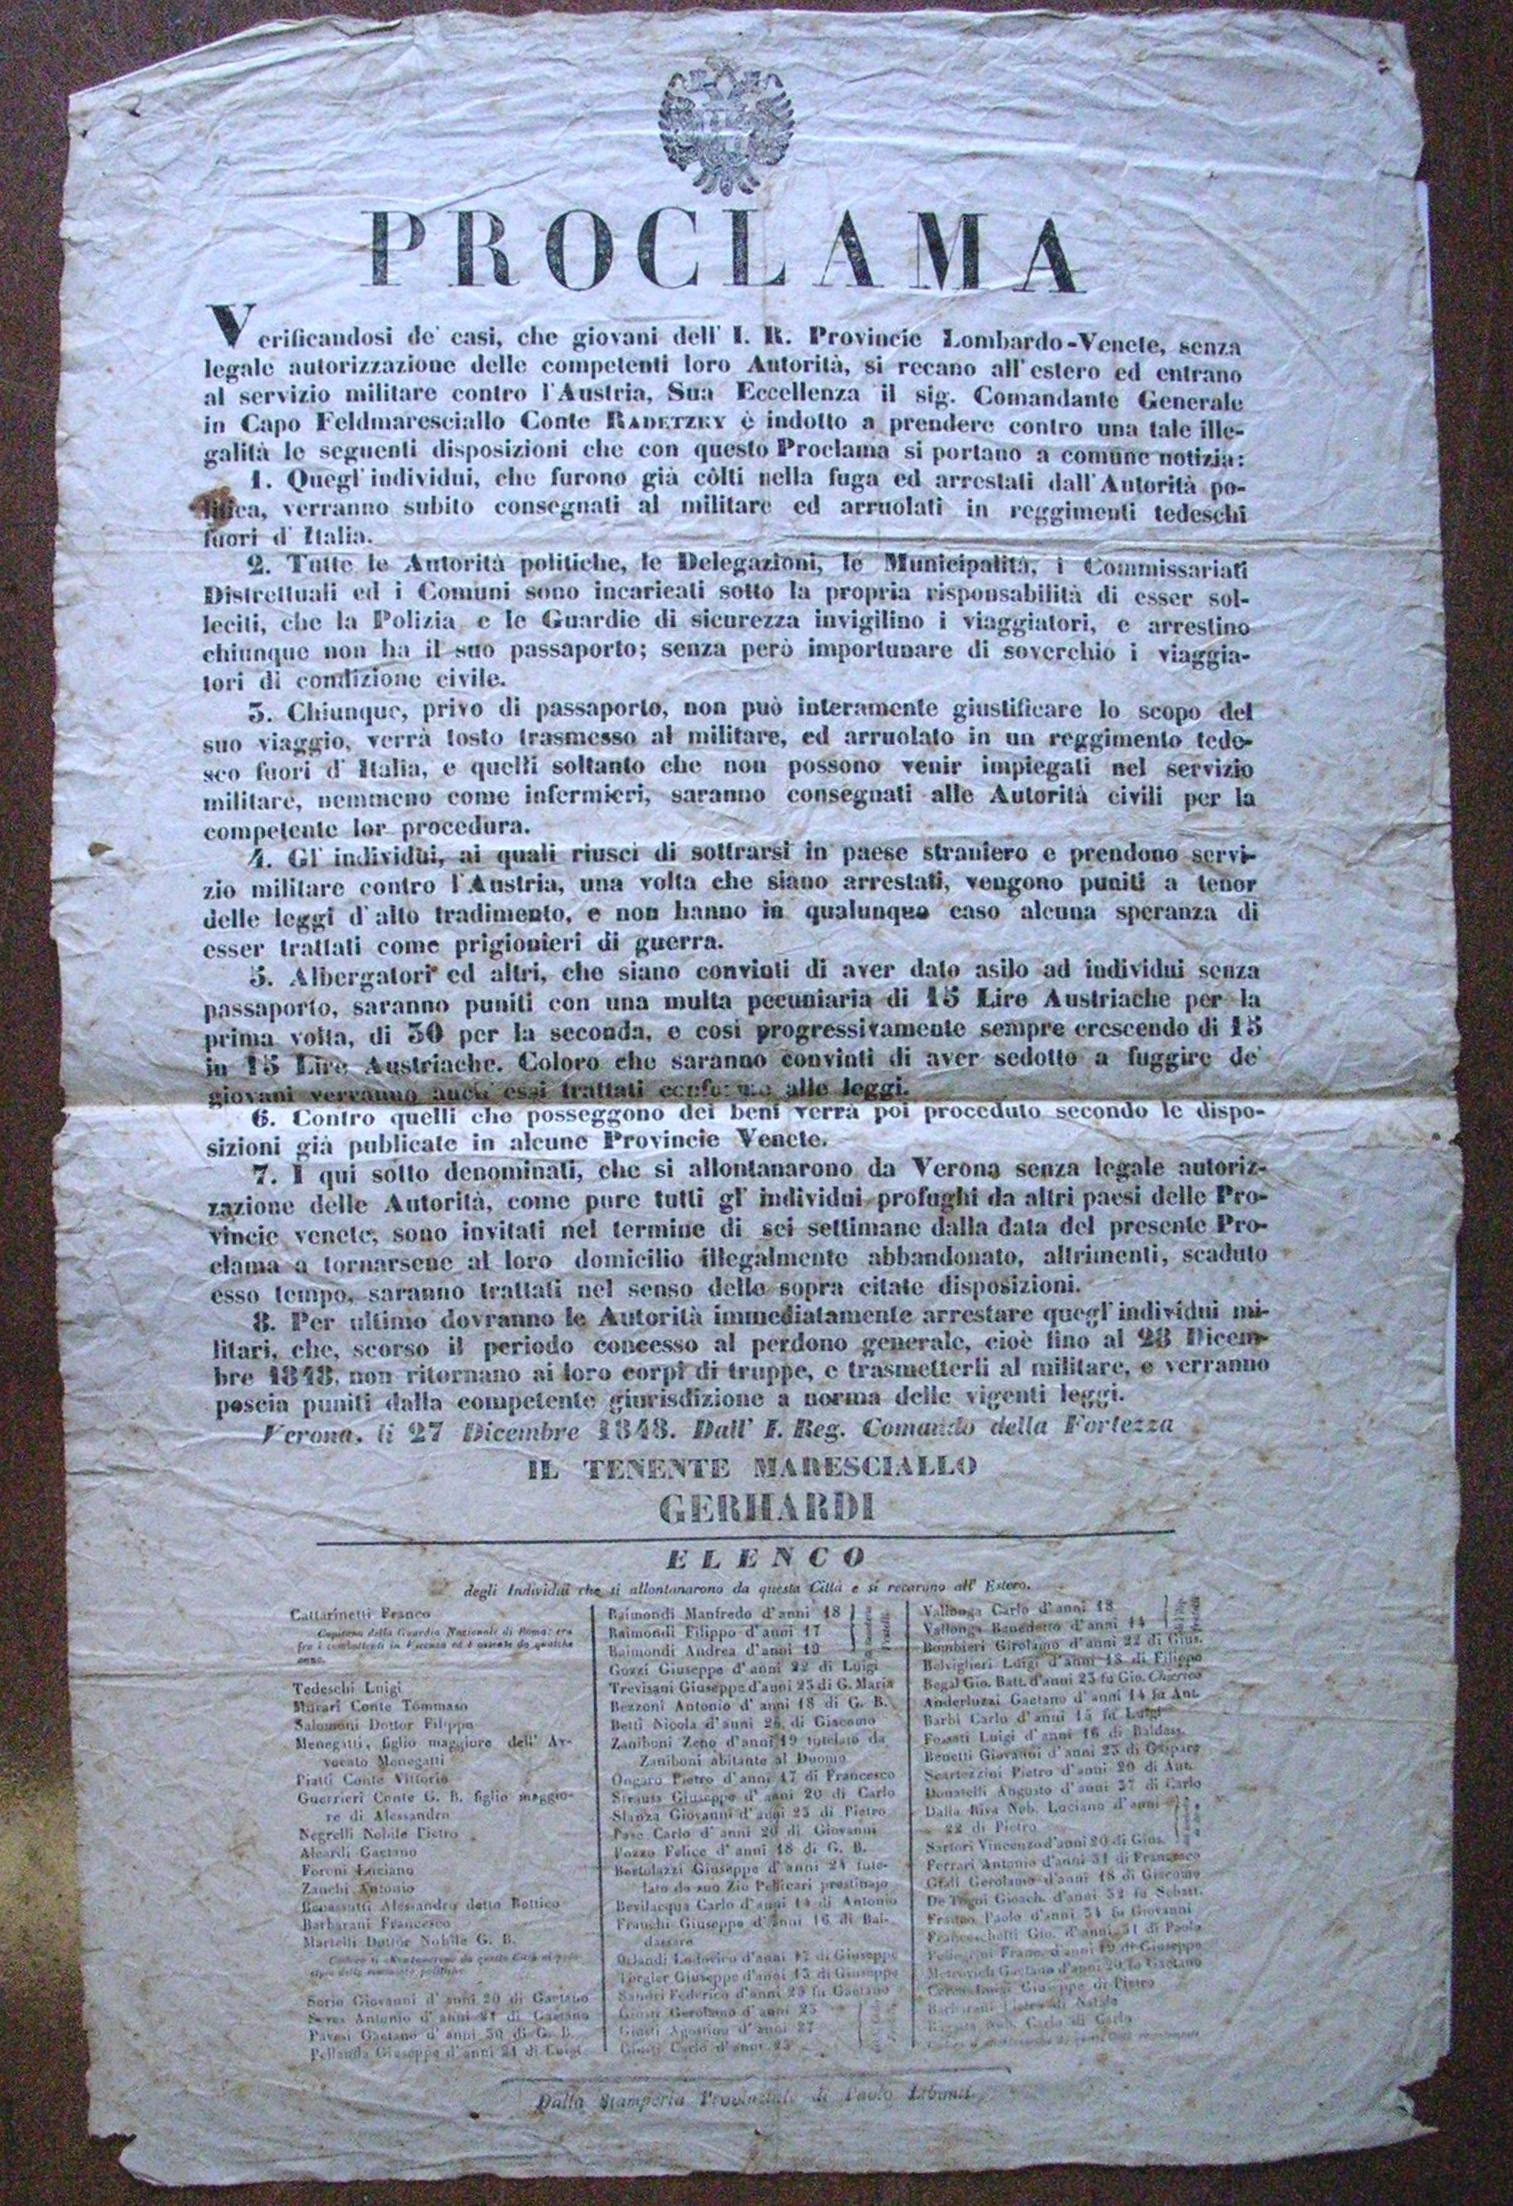 PROCLAMA
Verificandosi de' casi, che giovani dell' I. R. Provincie Lombardo-Venete, senza
legale autorizzazione delle competenti loro Autorità, si recano all' estero ed entrano
al servizio militare contro l'Austria, Sua Eccellenza il sig. Comandante Generale
in Capo Feldmaresciallo Conte RADETZKY è indotto a prendere contro una tale ille-
galità le seguenti disposizioni che con questo Proclama si portano a comune notizia:
1. Quegl' individui, che furono già côlti nella fuga ed arrestati dall' Autorità po-
litica, verranno subito consegnati al militare ed arruolati in reggimenti tedeschi
fuori d' Italia.
2. Tutte le Autorità politiche, le Delegazioni, le Municipalità, i Commissariati
Distrettuali ed i Comuni sono incaricati sotto la propria risponsabilità di esser sol-
leciti, che la Polizia e le Guardie di sicurezza invigilino i viaggiatori, e arrestino
chiunque non ha il suo passaporto; senza però importunare di soverchio i viaggia-
tori di condizione civile.
3. Chiunque, privo di passaporto, non può interamente giustificare lo scopo del
suo viaggio, verrà tosto trasmesso al militare, ed arruolato in un reggimento tede-
sco fuori d' Italia, e quelli soltanto che non possono venir impiegati nel servizio
militare, nemmeno come infermieri, saranno consegnati alle Autorità civili per la
competente lor procedura.
4. Gl' individui, ai quali riuscì di sottrarsi in paese straniero e prendono servi-
zio militare contro l'Austria, una volta che siano arrestati, vengono puniti a tenor
delle leggi d' alto tradimento, e non hanno in qualunque caso alcuna speranza di
esser trattati come prigionieri di guerra.
5. Albergatori ed altri, che siano convinti di aver dato asilo ad individui senza
passaporto, saranno puniti con una multa pecuniaria di 15 Lire Austriache per la
prima volta, di 30 per la seconda, e così progressivamente sempre crescendo di 15
in 15 Lire Austriache. Coloro che saranno convinti di aver sedotto a fuggire de'
giovani verranno anch' essi trattati conforme alle leggi.
6. Contro quelli che posseggono dei beni verrà poi proceduto secondo le dispo-
sizioni già publicate in alcune Provincie Venete.
7. I qui sotto denominati, che si allontanarono da Verona senza legale autoriz-
zazione delle Autorità, come pure tutti gl' individui profughi da altri paesi delle Pro-
vincie venete, sono invitati nel termine di sei settimane dalla data del presente Pro-
clama a tornarsene al loro domicilio illegalmente abbandonato, altrimenti, scaduto
esso tempo, saranno trattati nel senso delle sopra citate disposizioni.
8. Per ultimo dovranno le Autorità immediatamente arrestare quegl' individui mi-
litari, che, scorso il periodo concesso al perdono generale, cioè fino al 28 Dicem-
bre 1848, non ritornano ai loro corpi di truppe, e trasmetterli al militare, e verranno
poscia puniti dalla competente giurisdizione a norma delle vigenti leggi.
Verona, li 27 Dicembre 1848. Dall' I. Reg. Comando della Fortezza
IL TENENTE MARESCIALLO
GERHARDI
ELENCO
degli Individui che si allontanarono da questa Città e si recarono all' Estero.
Cattarinetti Franco
Capitano della Guardia Nazionale di Roma: era
fra i combattenti in Vicenza ed è assente da qualche
anno.
Tedeschi Luigi
Murari Conte Tommaso
Salomoni Dottor Filippo
Menegatti, figlio maggiore dell' Av-
vocato Menegatti
Piatti Conte Vittorio
Guerrieri Conte G. B. figlio maggio-
re di Alessandro
Negrelli Nobile Pietro
Aleardi Gaetano
Foroni Luciano
Zanchi Antonio
Benassutti Alessandro detto Bottico
Barbarani Francesco
Martelli Dottor Nobile G. B.
Sorio Giovanni d' anni 20 di Gaetano
Antonio d' anni 21 di Gaetano
Pavesi Gaetano d' anni 30 di G. B.
Pellanda Giuseppe d' anni 21 di Luigi
Raimondi Manfredo d' anni 18
Raimondi Filippo d' anni 17
Raimondi Andrea d' anni 19
Gozzi Giuseppe d' anni 22 di Luigi
Trevisani Giuseppe d'anni 23 di G. Maria
Bezzoni Antonio d' anni 18 di G. B.
Betti Nicola d' anni 26 di Giacomo
Zaniboni Zeno d'anni 19 tutelato da
Zaniboni abitante al Duomo
Ongaro Pietro d' anni 17 di Francesco
Strauss Giuseppe d' anni 20 di Carlo
Stanza Giovanni d' anni 23 di Pietro
Pase Carlo d' anni 20 di Giovanni
Pozzo Felice d' anni 18 di G. B.
Bortolazzi Giuseppe d' anni 24 tute-
lato da suo Zio Pellicari prestinajo
Bevilacqua Carlo d' anni 14 di Antonio
Franchi Giuseppe d' anni 16 di Bal-
dassare
Orlandi Lodovico d'anni 17 di Giuseppe
Torgler Giuseppe d'anni 15 di Giuseppe
Sandri Federico d'anni 25 fu Gaetano
Giusti Gerolamo d' anni 25
Giusti Agostino d' anni 27
Giusti Carlo d' anni 23
Vallonga Carlo d' anni 18
Vallonga Benedetto d' anni 14
Bombieri Girolamo d' anni 22 di Gius.
Belviglieri Luigi d' anni 18 di Filippo
Begal Gio. Batt. d'anni 23 fu Gio. Chierico
Anderluzzi Gaetano d' anni 14 fu Ant.
Barbi Carlo d' anni 15 fu Luigi
Fossati Luigi d' anni 16 di Baldass.
Benetti Giovanni d' anni 23 di Gaspare
Scartezzini Pietro d' anni 20 di Ant.
Donatelli Augusto d' anni 37 di Carlo
Dalla Riva Nob. Luciano d' anni
22 di Pietro
Sartori Vincenzo d'anni 20 di Gius.
Ferrari Antonio d'anni 31 di Francesco
Gerolamo d'anni 18 di Giacomo
De Togni Gioach. d'anni 32 fu Sebast.
Paolo d'anni 34 fu Giovanni
Franceschetti Gio. d'anni 31 di Paolo
Pellegrini Franc. d'anni 19 di Giuseppe
Gaetano d'anni 20 fu Gaetano
Giuseppe di Pietro
Barbarani Pietro di Natale
Nob. Carlo di Carlo
Dalla Stamperia Provinciale di Paolo Libanti